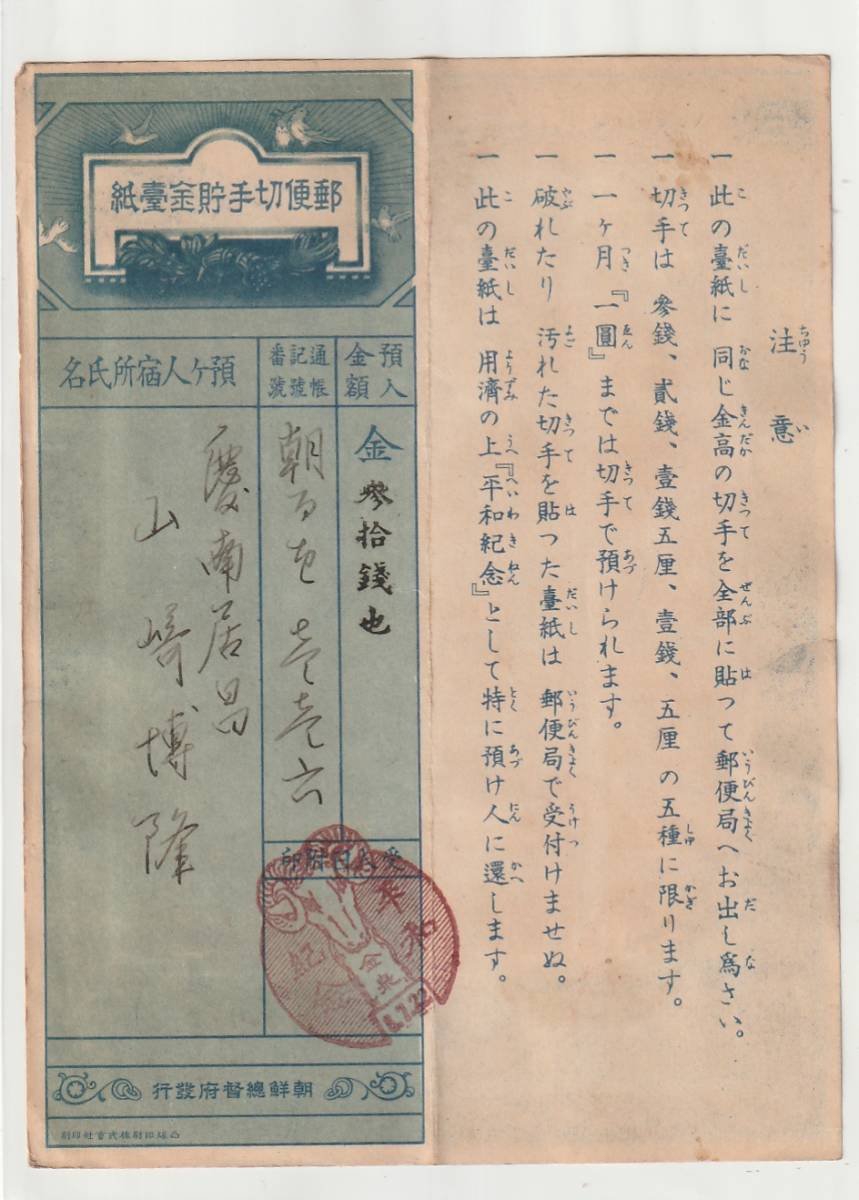 注意
一 此の臺紙に 同じ金高の切手を全部に貼つて郵便局へお出し爲さい。
一 切手は 參錢、貳錢、壹錢五厘、壹錢、五厘 の五種に限ります。
一 一ヶ月『一圓』までは切手で預けられます。
一 破れたり 汚れた切手を貼つた臺紙は 郵便局で受付けませぬ。
一 此の臺紙は 用濟の上『平和紀念』として特に預け人に還します。
郵便切手貯金臺紙
預入金額
金參拾錢也
通帳記號番號
朝 壹壹六
預ケ人宿所氏名
慶南居昌
山崎博隆
受入日附印
平和
紀念
8.7.22
朝鮮總督府發行
凸版印刷株式會社印刷